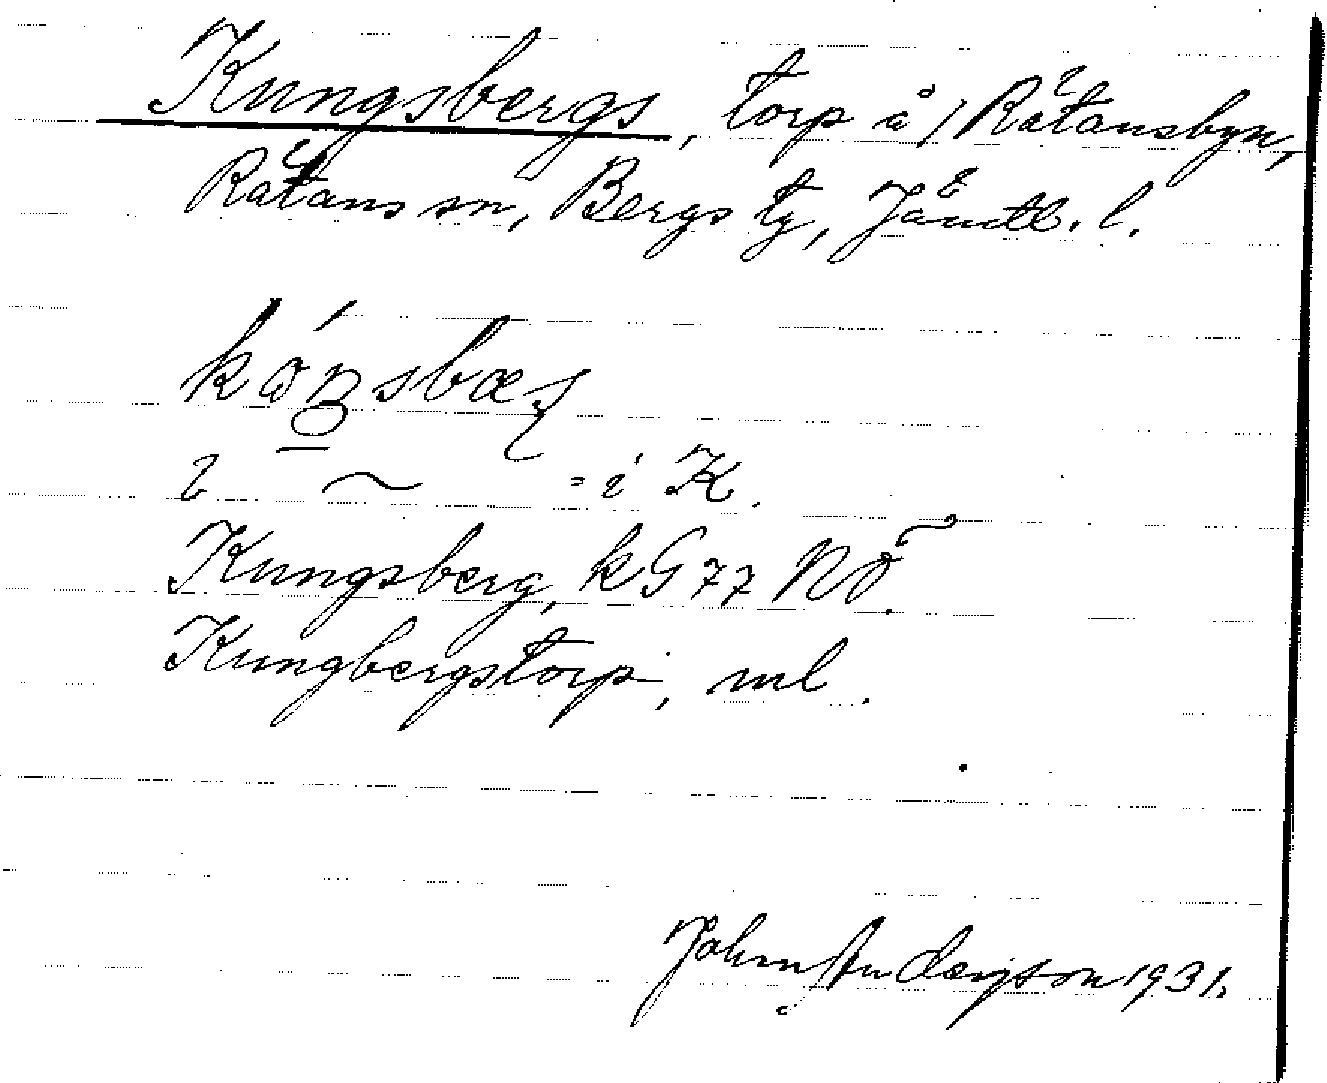 Kungsbergs, torp å / Rätansbyn,
Rätans sn, Bergs tg, Jämtl. l.
i ~ = i K.
Kungsberg, kG77 NÖ.
Kungbergstorp, ml.
John Andersson 1931.